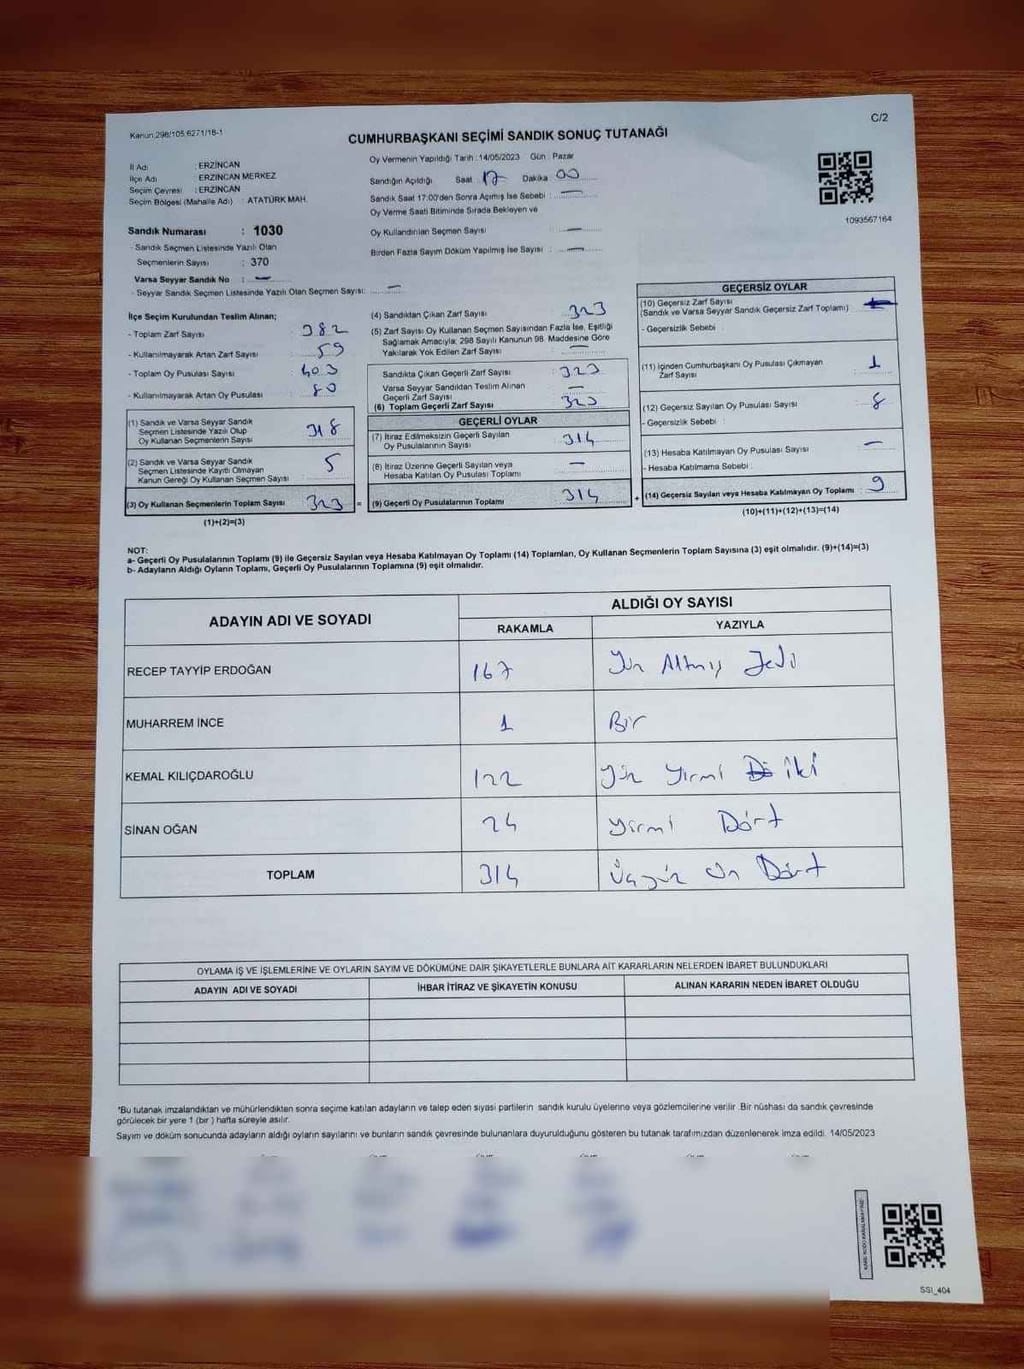 Kanun:298/105,6271/18-1
C/2
CUMHURBAŞKANI SEÇİMİ SANDIK SONUÇ TUTANAĞI
İl Adı : ERZİNCAN
İlçe Adı : ERZİNCAN MERKEZ
Seçim Çevresi : ERZİNCAN
Seçim Bölgesi (Mahalle Adı) : ATATÜRK MAH.
Sandık Numarası : 1030
- Sandık Seçmen Listesinde Yazılı Olan
Seçmenlerin Sayısı : 370
Varsa Seyyar Sandık No : —
- Seyyar Sandık Seçmen Listesinde Yazılı Olan Seçmen Sayısı: —
Oy Vermenin Yapıldığı Tarih :14/05/2023 Gün : Pazar
Sandığın Açıldığı Saat 17 Dakika 00
Sandık Saat 17:00'den Sonra Açılmış İse Sebebi : —
Oy Verme Saati Bitiminde Sırada Bekleyen ve
Oy Kullandırılan Seçmen Sayısı : —
Birden Fazla Sayım Döküm Yapılmış İse Sayısı : —
1093567164
İlçe Seçim Kurulundan Teslim Alınan;
- Toplam Zarf Sayısı : 382
- Kullanılmayarak Artan Zarf Sayısı : 59
- Toplam Oy Pusulası Sayısı : 403
- Kullanılmayarak Artan Oy Pusulası : 80
(1) Sandık ve Varsa Seyyar Sandık
Seçmen Listesinde Yazılı Olup
Oy Kullanan Seçmenlerin Sayısı : 318
(2) Sandık ve Varsa Seyyar Sandık
Seçmen Listesinde Kayıtlı Olmayan
Kanun Gereği Oy Kullanan Seçmen Sayısı : 5
(3) Oy Kullanan Seçmenlerin Toplam Sayısı : 323 =
(1)+(2)=(3)
(4) Sandıktan Çıkan Zarf Sayısı : 323
(5) Zarf Sayısı Oy Kullanan Seçmen Sayısından Fazla İse, Eşitliği
Sağlamak Amacıyla; 298 Sayılı Kanunun 98. Maddesine Göre
Yakılarak Yok Edilen Zarf Sayısı : —
Sandıkta Çıkan Geçerli Zarf Sayısı : 323
Varsa Seyyar Sandıktan Teslim Alınan
Geçerli Zarf Sayısı : —
(6) Toplam Geçerli Zarf Sayısı : 323
GEÇERLİ OYLAR
(7) İtiraz Edilmeksizin Geçerli Sayılan
Oy Pusulalarının Sayısı : 314
(8) İtiraz Üzerine Geçerli Sayılan veya
Hesaba Katılan Oy Pusulası Toplamı : —
(9) Geçerli Oy Pusulalarının Toplamı : 314 +
GEÇERSİZ OYLAR
(10) Geçersiz Zarf Sayısı
(Sandık ve Varsa Seyyar Sandık Geçersiz Zarf Toplamı) :
- Geçersizlik Sebebi :
(11) İçinden Cumhurbaşkanı Oy Pusulası Çıkmayan
Zarf Sayısı : 1
(12) Geçersiz Sayılan Oy Pusulası Sayısı : 8
- Geçersizlik Sebebi :
(13) Hesaba Katılmayan Oy Pusulası Sayısı : —
- Hesaba Katılmama Sebebi :
(14) Geçersiz Sayılan veya Hesaba Katılmayan Oy Toplamı : 9
(10)+(11)+(12)+(13)=(14)
NOT:
a- Geçerli Oy Pusulalarının Toplamı (9) ile Geçersiz Sayılan veya Hesaba Katılmayan Oy Toplamı (14) Toplamları, Oy Kullanan Seçmenlerin Toplam Sayısına (3) eşit olmalıdır. (9)+(14)=(3)
b- Adayların Aldığı Oyların Toplamı, Geçerli Oy Pusulalarının Toplamına (9) eşit olmalıdır.
ADAYIN ADI VE SOYADI ALDIĞI OY SAYISI
RAKAMLA YAZIYLA
RECEP TAYYİP ERDOĞAN 167 Yüz Altmış Yedi
MUHARREM İNCE 1 Bir
KEMAL KILIÇDAROĞLU 122 Yüz Yirmi İki
SİNAN OĞAN 24 Yirmi Dört
TOPLAM 314 Üçyüz On Dört
OYLAMA İŞ VE İŞLEMLERİNE VE OYLARIN SAYIM VE DÖKÜMÜNE DAİR ŞİKAYETLERLE BUNLARA AİT KARARLARIN NELERDEN İBARET BULUNDUKLARI
ADAYIN ADI VE SOYADI İHBAR İTİRAZ VE ŞİKAYETİN KONUSU ALINAN KARARIN NEDEN İBARET OLDUĞU
*Bu tutanak imzalandıktan ve mühürlendikten sonra seçime katılan adayların ve talep eden siyasi partilerin sandık kurulu üyelerine veya gözlemcilerine verilir. Bir nüshası da sandık çevresinde
görülecek bir yere 1 (bir) hafta süreyle asılır.
Sayım ve döküm sonucunda adayların aldığı oyların sayılarını ve bunların sandık çevresinde bulunanlara duyurulduğunu gösteren bu tutanak tarafımızdan düzenlenerek imza edildi. 14/05/2023
SSI_404